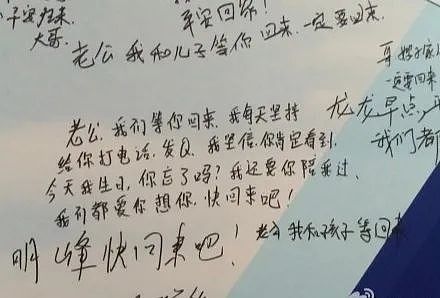 平安回来!
大哥.
老公 我和儿子等你回来.一定要回来.
一定要回来
龙龙早点
我们都
老公.我们等你回来.我每天坚持
给你打电话,发Q.我坚信你肯定看到.
今天我生日,你忘了吗?我还要你陪我过.
我们都爱你想你,快回来吧!
明峰快回来吧!
老公 我和孩子等回来